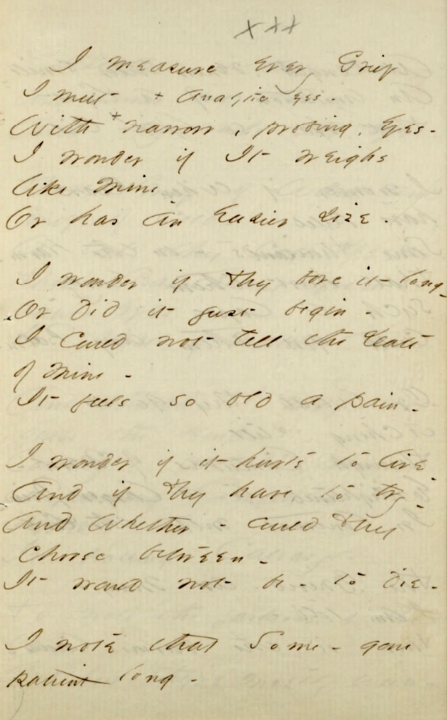 xxx
I measure every Grief
I meet + Analytic eyes -
With + narrow, probing, eyes -
I wonder if It weighs
like Mine
Or has an Easier size -
I wonder if They bore it long -
Or did it just begin -
I could not tell the Date
of Mine -
It feels so old a pain -
I wonder if it hurts to live -
And if They have to try -
And whether - could They
choose between -
It would not be - to die -
I note that Some - gone
patient long -